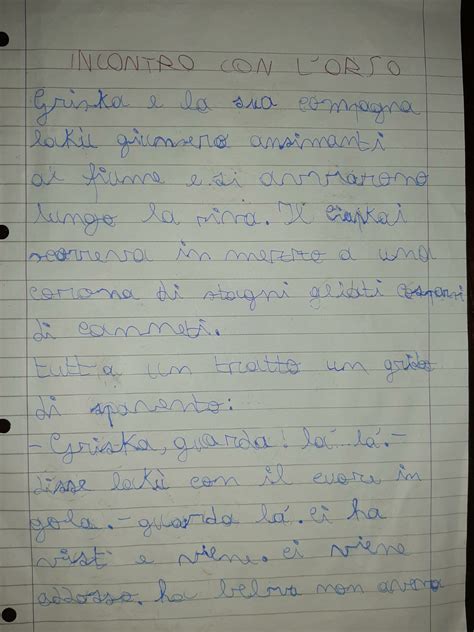 INCONTRO CON L'ORSO
Griska e la sua compagna
lakù giunsero ansimanti
al fiume e si avviarono
lungo la riva. Il
scorreva in mezzo a una
corona di stagni gelati
di canneti.
tutt a un tratto un grido
di spavento:
- Griska, guarda! là là. -
disse lakù con il cuore in
gola. - guarda là. ci ha
visti e viene. ci viene
addosso. ha belva non aveva